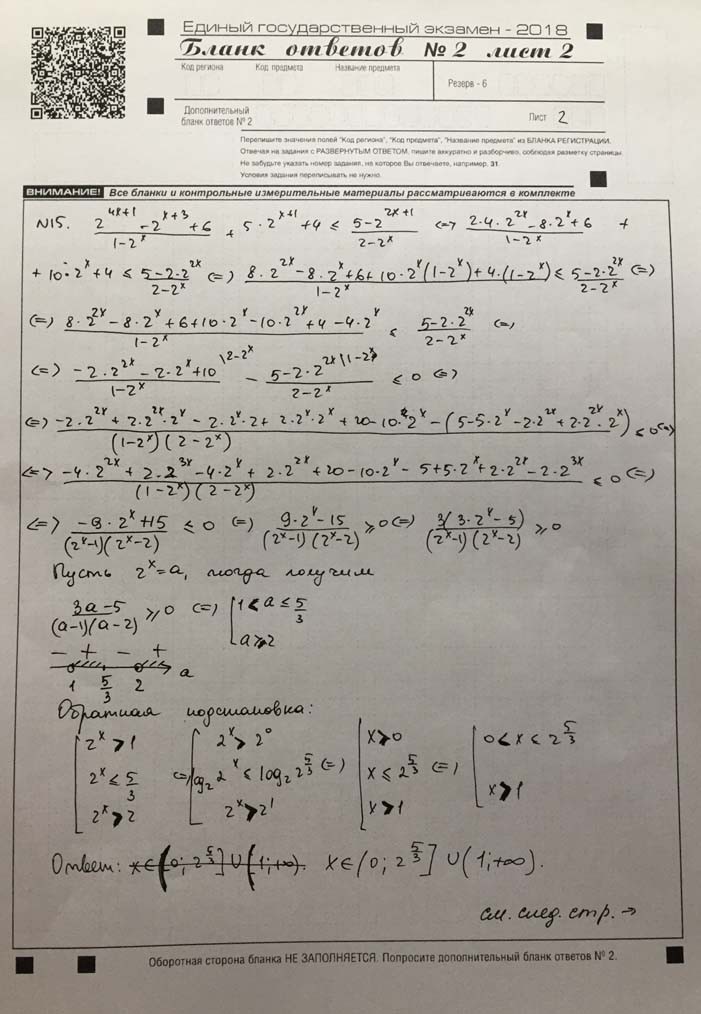 Единый государственный экзамен - 2018
Бланк ответов № 2 лист 2
Код региона Код предмета Название предмета
Резерв - 6
Дополнительный
бланк ответов № 2
Лист 2
Перепишите значения полей "Код региона", "Код предмета", "Название предмета" из БЛАНКА РЕГИСТРАЦИИ.
Отвечая на задания с РАЗВЕРНУТЫМ ОТВЕТОМ, пишите аккуратно и разборчиво, соблюдая разметку страницы.
Не забудьте указать номер задания, на которое Вы отвечаете, например, 31.
Условия задания переписывать не нужно.
ВНИМАНИЕ! Все бланки и контрольные измерительные материалы рассматриваются в комплекте
N15. (2^(4x+1) - 2^(x+3) + 6)/(1-2^x) + 5·2^(x+1) + 4 ≤ (5-2^(2x+1))/(2-2^x) <=> (2·4·2^(2x) - 8·2^x + 6)/(1-2^x) +
+ 10·2^x + 4 ≤ (5-2·2^(2x))/(2-2^x) (=) (8·2^(2x) - 8·2^x + 6 + 10·2^x(1-2^x) + 4·(1-2^x))/(1-2^x) ≤ (5-2·2^(2x))/(2-2^x) (=)
(=) (8·2^(2x) - 8·2^x + 6 + 10·2^x - 10·2^(2x) + 4 - 4·2^x)/(1-2^x) ≤ (5-2·2^(2x))/(2-2^x) (=)
(=) (-2·2^(2x) - 2·2^x + 10)/(1-2^x) \2-2^x - (5-2·2^(2x))/(2-2^x) \1-2^x ≤ 0 (=)
(=) (-2·2^(2x)·2 + 2·2^(2x)·2^x - 2·2^x·2 + 2·2^x·2^x + 20 - 10·2^x - (5-5·2^x - 2·2^(2x) + 2·2^(2x)·2^x))/((1-2^x)(2-2^x)) ≤ 0 (=)
(=) (-4·2^(2x) + 2·2^(3x) - 4·2^x + 2·2^(2x) + 20 - 10·2^x - 5 + 5·2^x + 2·2^(2x) - 2·2^(3x))/((1-2^x)(2-2^x)) ≤ 0 (=)
(=) (-9·2^x + 15)/((2^x-1)(2^x-2)) ≤ 0 (=) (9·2^x - 15)/((2^x-1)(2^x-2)) ≥ 0 (=) (3(3·2^x - 5))/((2^x-1)(2^x-2)) ≥ 0
Пусть 2^x = a, тогда получим
(3a-5)/((a-1)(a-2)) ≥ 0 (=) [ 1 < a ≤ 5/3
a > 2
- + - +
1 5/3 2 a
Обратная подстановка:
[ 2^x > 1 [ 2^x > 2^0 [ x > 0 [ 0 < x ≤ 2^(5/3)
2^x ≤ 5/3 (=) log₂ 2^x ≤ log₂ 2^(5/3) (=) x ≤ 2^(5/3) (=)
2^x > 2 2^x > 2^1 x > 1 x > 1
Ответ: x∈(0; 2^(5/3)] ∪ (1; +∞). x∈(0; 2^(5/3)] ∪ (1; +∞).
см. след. стр. →
Оборотная сторона бланка НЕ ЗАПОЛНЯЕТСЯ. Попросите дополнительный бланк ответов № 2.